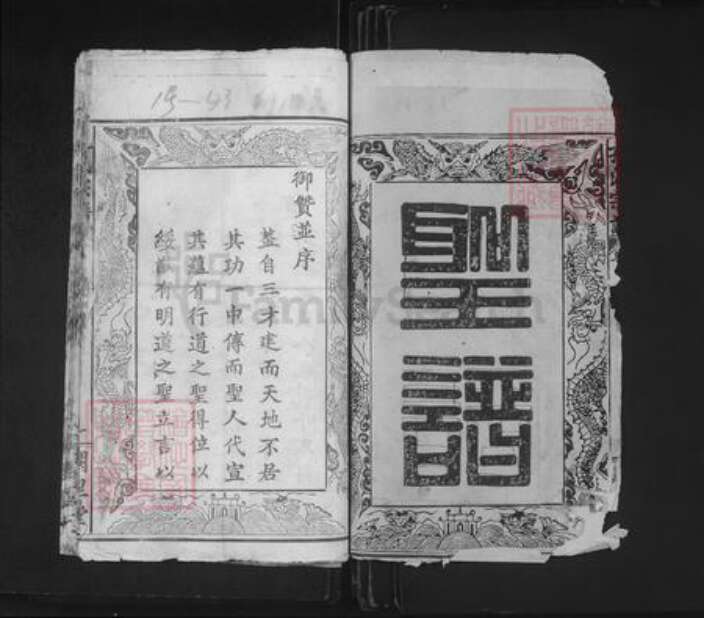 聖譜
御贊並序
蓋自三才建而天地不居
其功一中傳而聖人代宣
其蘊有行道之聖得位以
綏猷有明道之聖立言以
FamilySearch